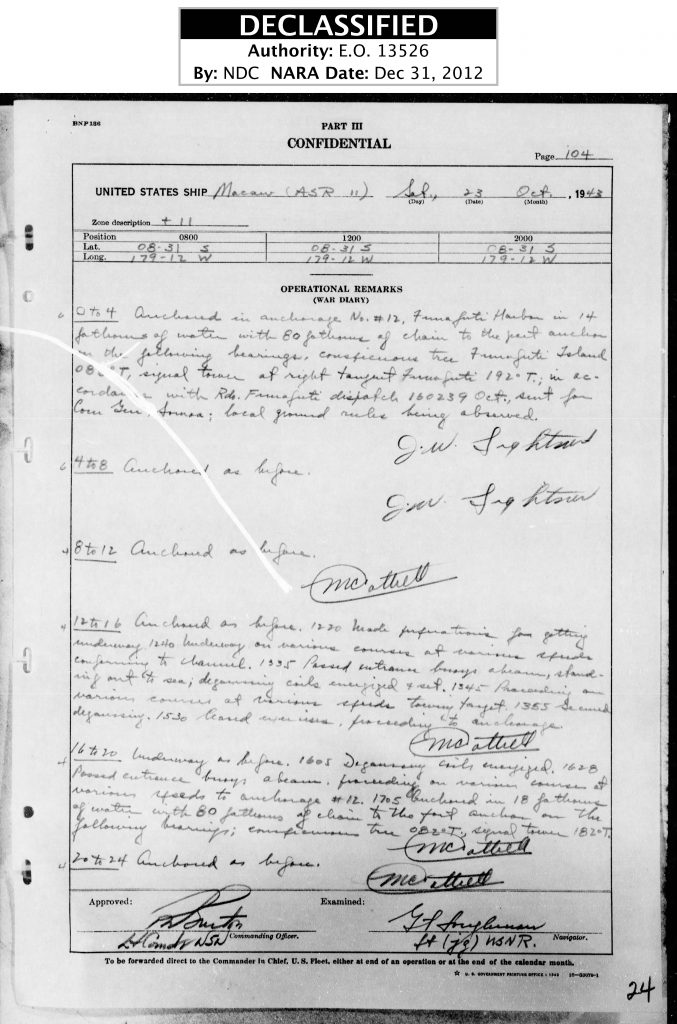 DECLASSIFIED
Authority: E.O. 13526
By: NDC NARA Date: Dec 31, 2012
BNP 186
PART III
CONFIDENTIAL
Page 104
UNITED STATES SHIP Macaw (ASR 11) Sat., 23 Oct., 1943
(Day) (Date) (Month)
Zone description + 11
Position 0800 1200 2000
Lat. 08-31 S 08-31 S 08-31 S
Long. 179-12 W 179-12 W 179-12 W
OPERATIONAL REMARKS
(WAR DIARY)
0 to 4 Anchored in anchorage No. #12, Funafuti Harbor in 14
fathoms of water with 80 fathoms of chain to the port anchor
on the following bearings, conspicuous tree Funafuti Island
082°T, signal tower at right tangent Funafuti 192°T.; in ac-
cordance with Rdo. Funafuti dispatch 160239 Oct., sent for
Com Gen, Samoa; local ground rules being observed.
J.W. Lightner
4 to 8 Anchored as before.
J.W. Lightner
8 to 12 Anchored as before.
12 to 16 Anchored as before. 1220 Made preparations for getting
underway 1240 Underway on various courses at various speeds
conforming to channel. 1335 Passed entrance buoys abeam, stand-
ing out to sea; degaussing coils energized & set. 1345 Proceeding on
various courses at various speeds towing target. 1355 Secured
degaussing. 1530 exercises, proceeding to anchorage.
16 to 20 Underway as before. 1605 Degaussing coils energized. 1628
Passed entrance buoys abeam, proceeding on various courses at
various speeds to anchorage #12. 1705 Anchored in 18 fathoms
of water with 80 fathoms of chain to the port anchor on the
following bearings; conspicuous tree 082°T., signal tower 182°T.
20 to 24 Anchored as before.
Approved: Examined:
Lt Comdr USN Commanding Officer. Lt (jg) USNR. Navigator.
To be forwarded direct to the Commander in Chief, U.S. Fleet, either at end of an operation or at the end of the calendar month.
☆ U. S. GOVERNMENT PRINTING OFFICE: 1943
24